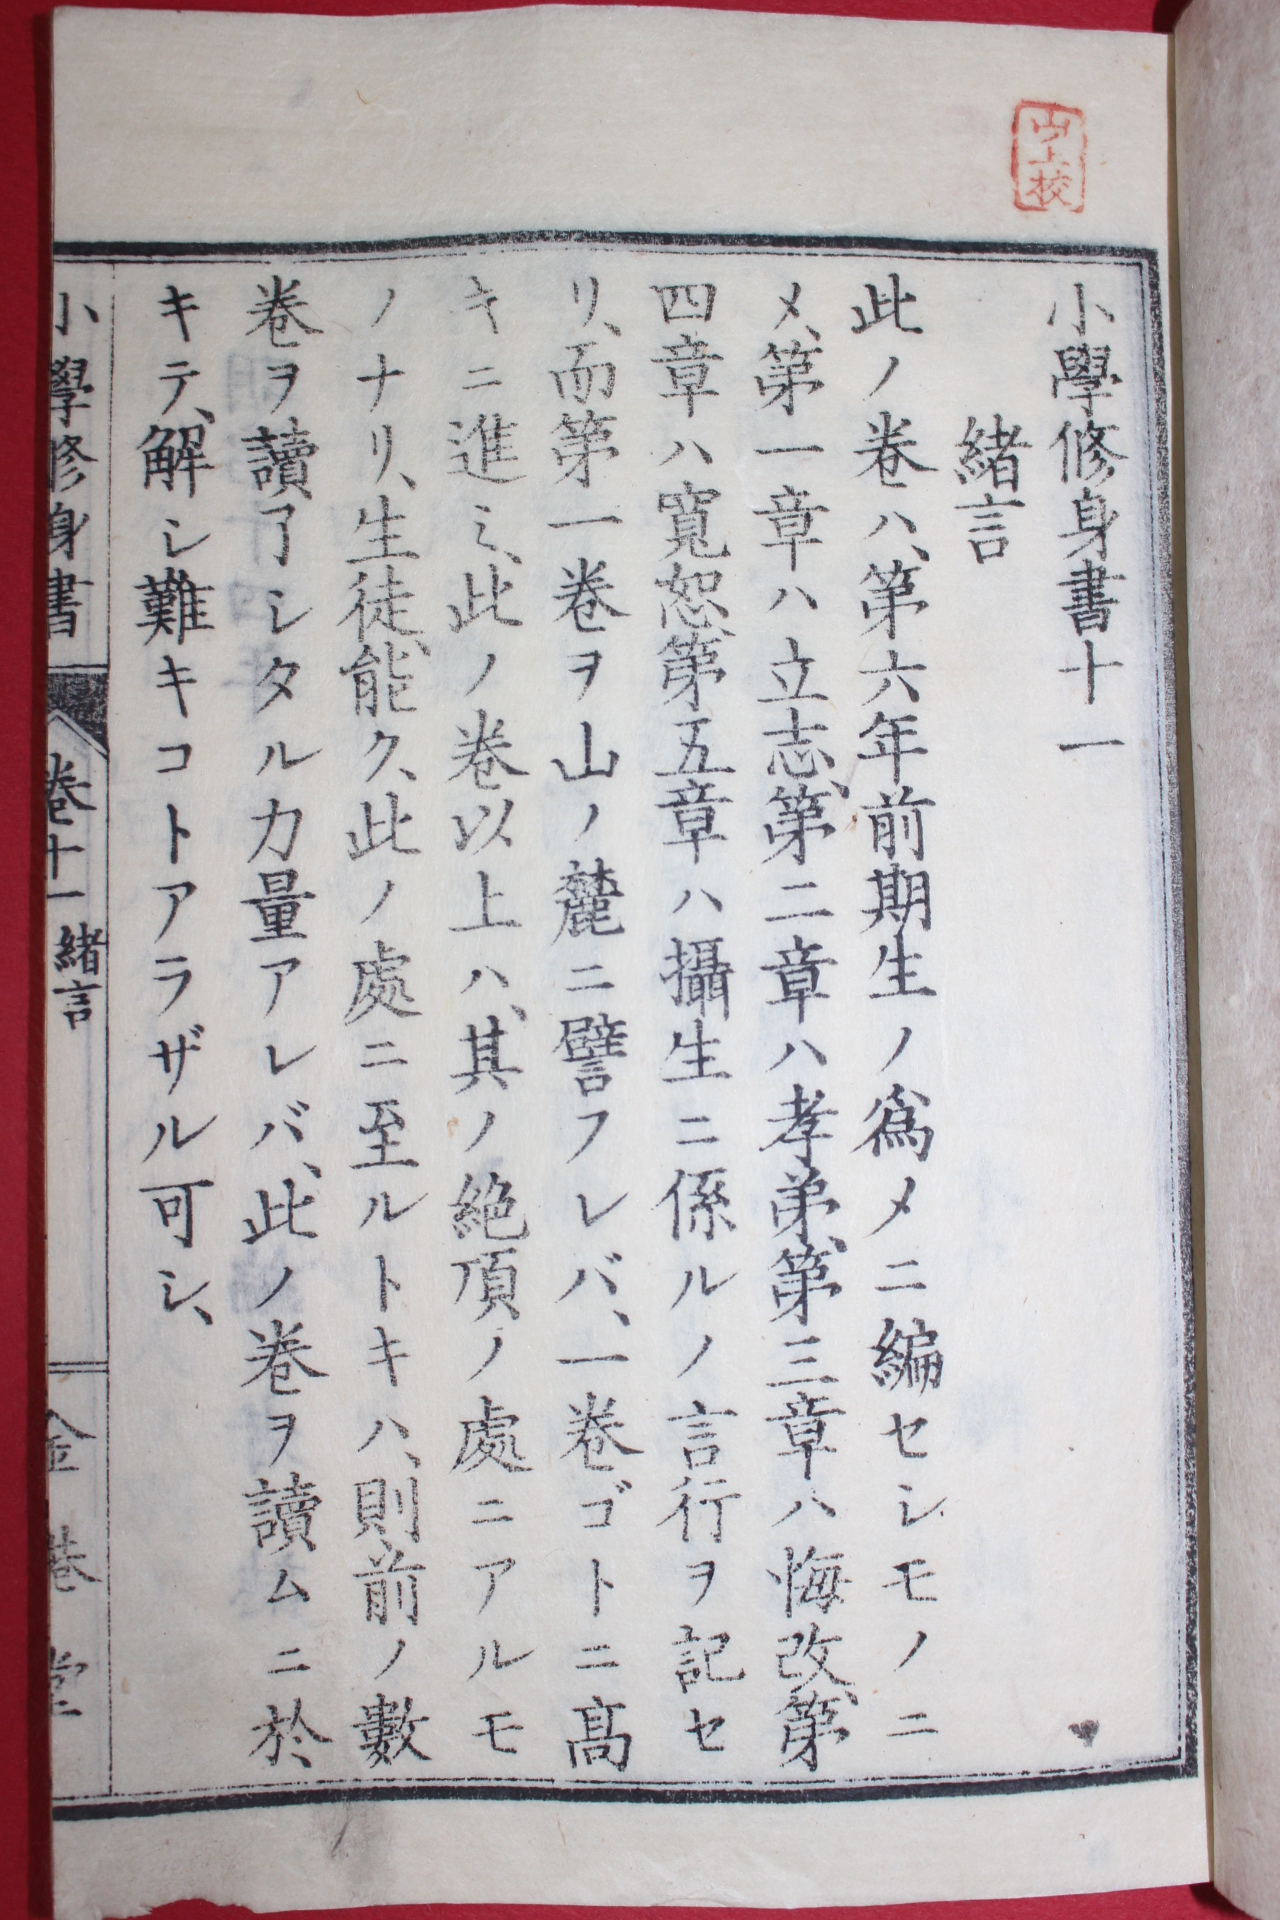 山上校
小學修身書十一
緒言
此ノ卷ハ、第六年前期生ノ爲メニ編セシモノニ
メ、第一章ハ立志、第二章ハ孝弟、第三章ハ悔改、第
四章ハ寬恕、第五章ハ攝生ニ係ルノ言行ヲ記セ
リ、而第一卷ヲ山ノ麓ニ譬フレバ、一卷ゴトニ高
キニ進ミ、此ノ卷以上ハ、其ノ絶頂ノ處ニアルモ
ノナリ、生徒、能ク、此ノ處ニ至ルトキハ、則前ノ數
卷ヲ讀了シタル力量アレバ、此ノ卷ヲ讀ムニ於
キテ、解シ難キコトアラザル可シ、
小學修身書 卷十一 緒言 金港堂